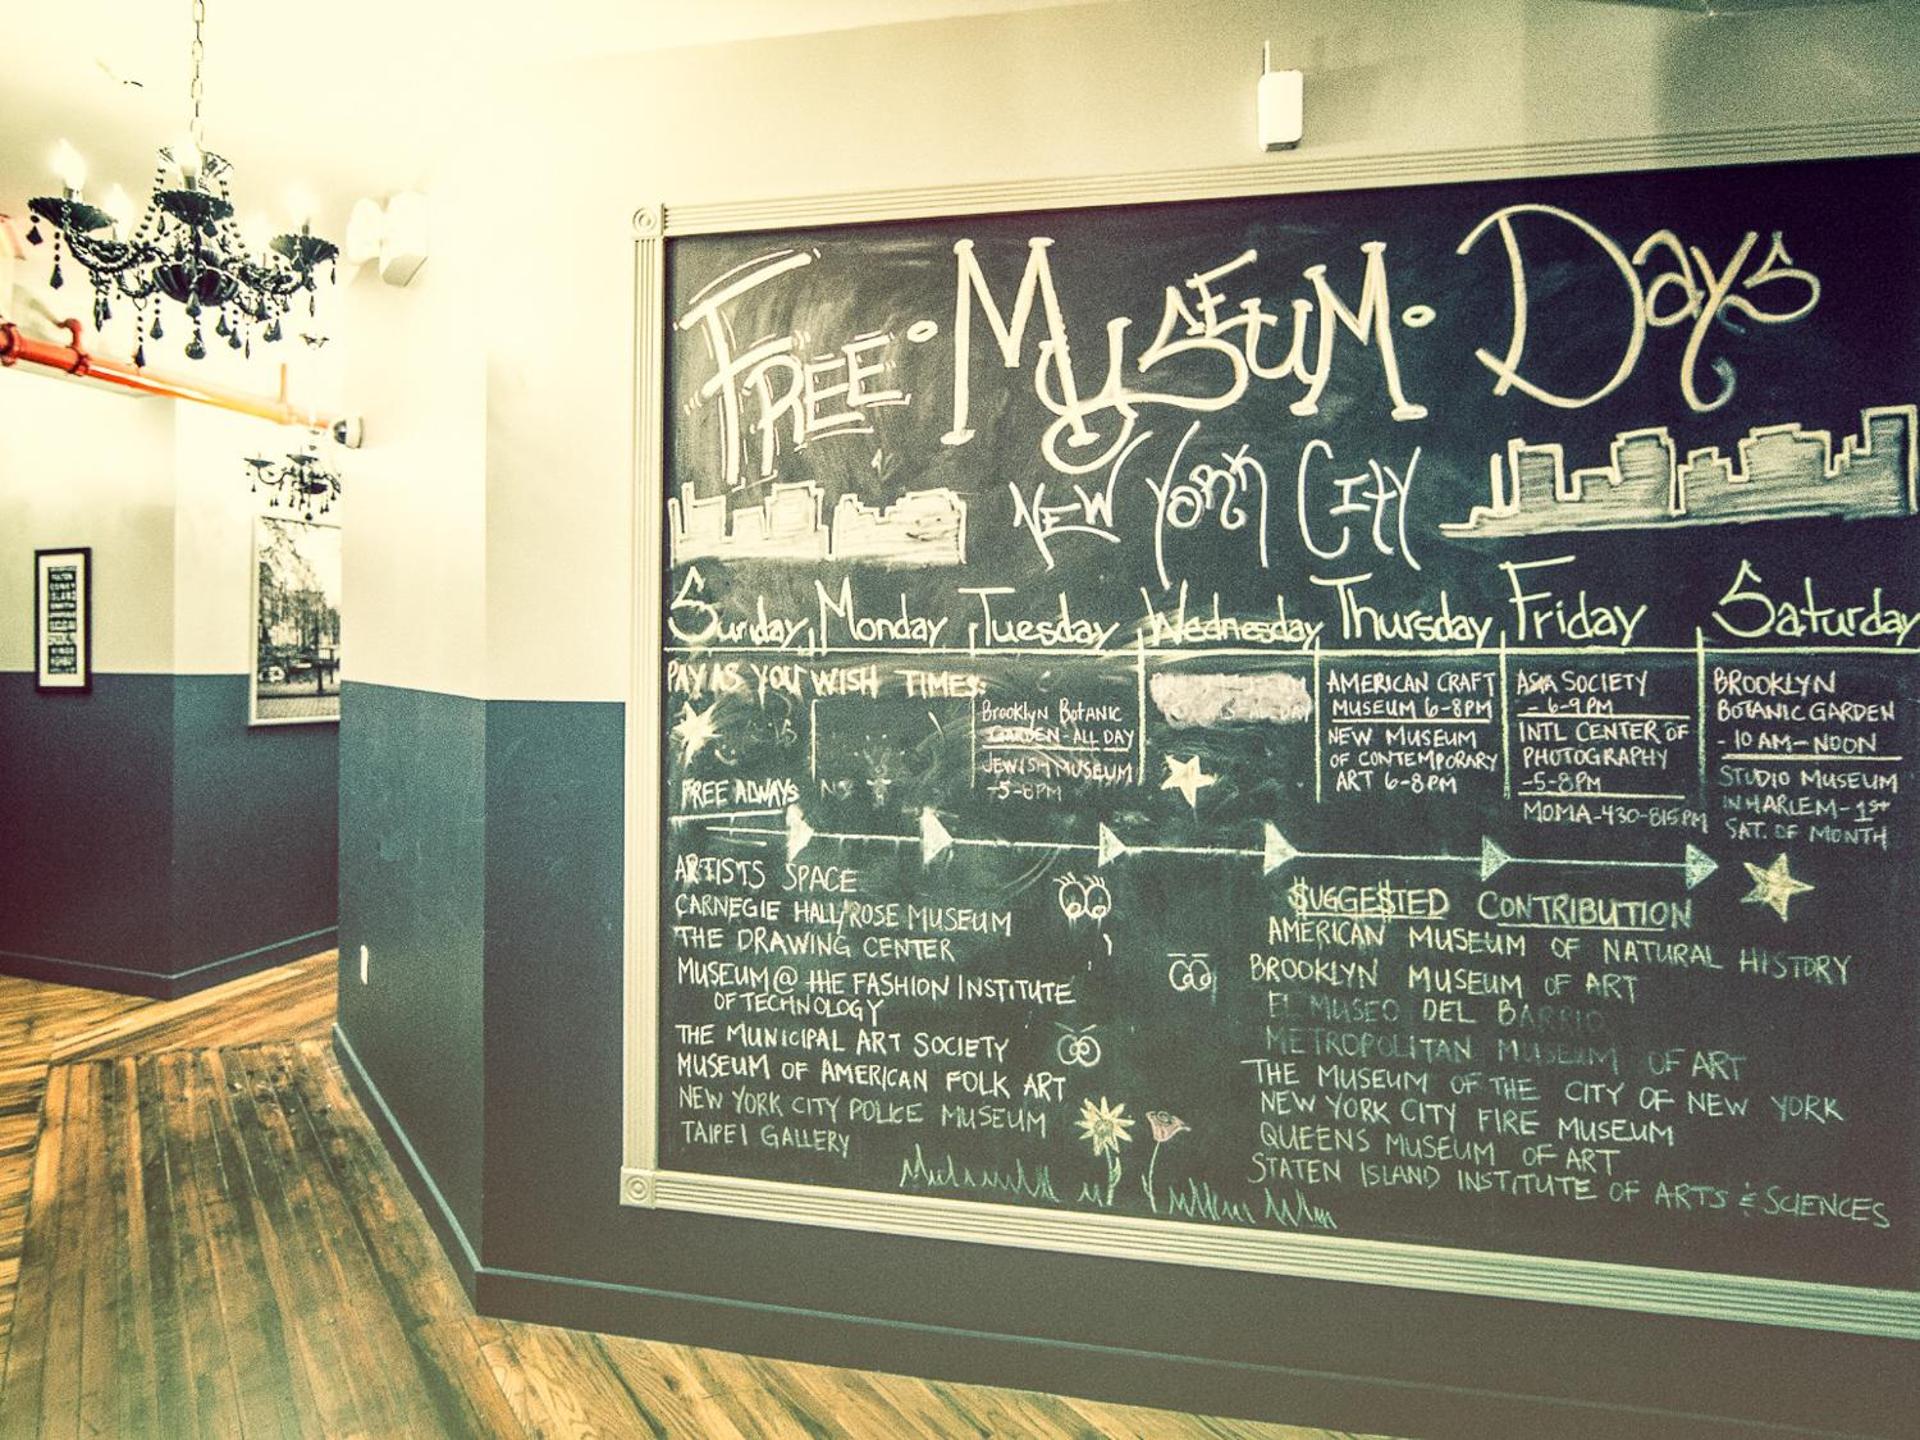 FREE • MUSEUM • DAYS
NEW YORK CITY
Sunday Monday Tuesday Wednesday Thursday Friday Saturday
PAY AS YOU WISH TIMES:
Brooklyn BOTANIC
GARDEN - ALL DAY
JEWISH MUSEUM
-5-8PM
AMERICAN CRAFT
MUSEUM 6-8PM
NEW MUSEUM
OF CONTEMPORARY
ART 6-8PM
ASIA SOCIETY
- 6-9 PM
INTL CENTER OF
PHOTOGRAPHY
-5-8PM
MOMA-430-815PM
BROOKLYN
BOTANIC GARDEN
- 10 AM-NOON
STUDIO MUSEUM
IN HARLEM- 1st
SAT. OF MONTH
FREE ALWAYS
ARTISTS SPACE
CARNEGIE HALL/ROSE MUSEUM
THE DRAWING CENTER
MUSEUM @ THE FASHION INSTITUTE
OF TECHNOLOGY
THE MUNICIPAL ART SOCIETY
MUSEUM OF AMERICAN FOLK ART
NEW YORK CITY POLICE MUSEUM
TAIPEI GALLERY
$UGGE$TED CONTRIBUTION
AMERICAN MUSEUM OF NATURAL HISTORY
BROOKLYN MUSEUM OF ART
EL MUSEO DEL BARRIO
METROPOLITAN MUSEUM OF ART
THE MUSEUM OF THE CITY OF NEW YORK
NEW YORK CITY FIRE MUSEUM
QUEENS MUSEUM OF ART
STATEN ISLAND INSTITUTE OF ARTS & SCIENCES